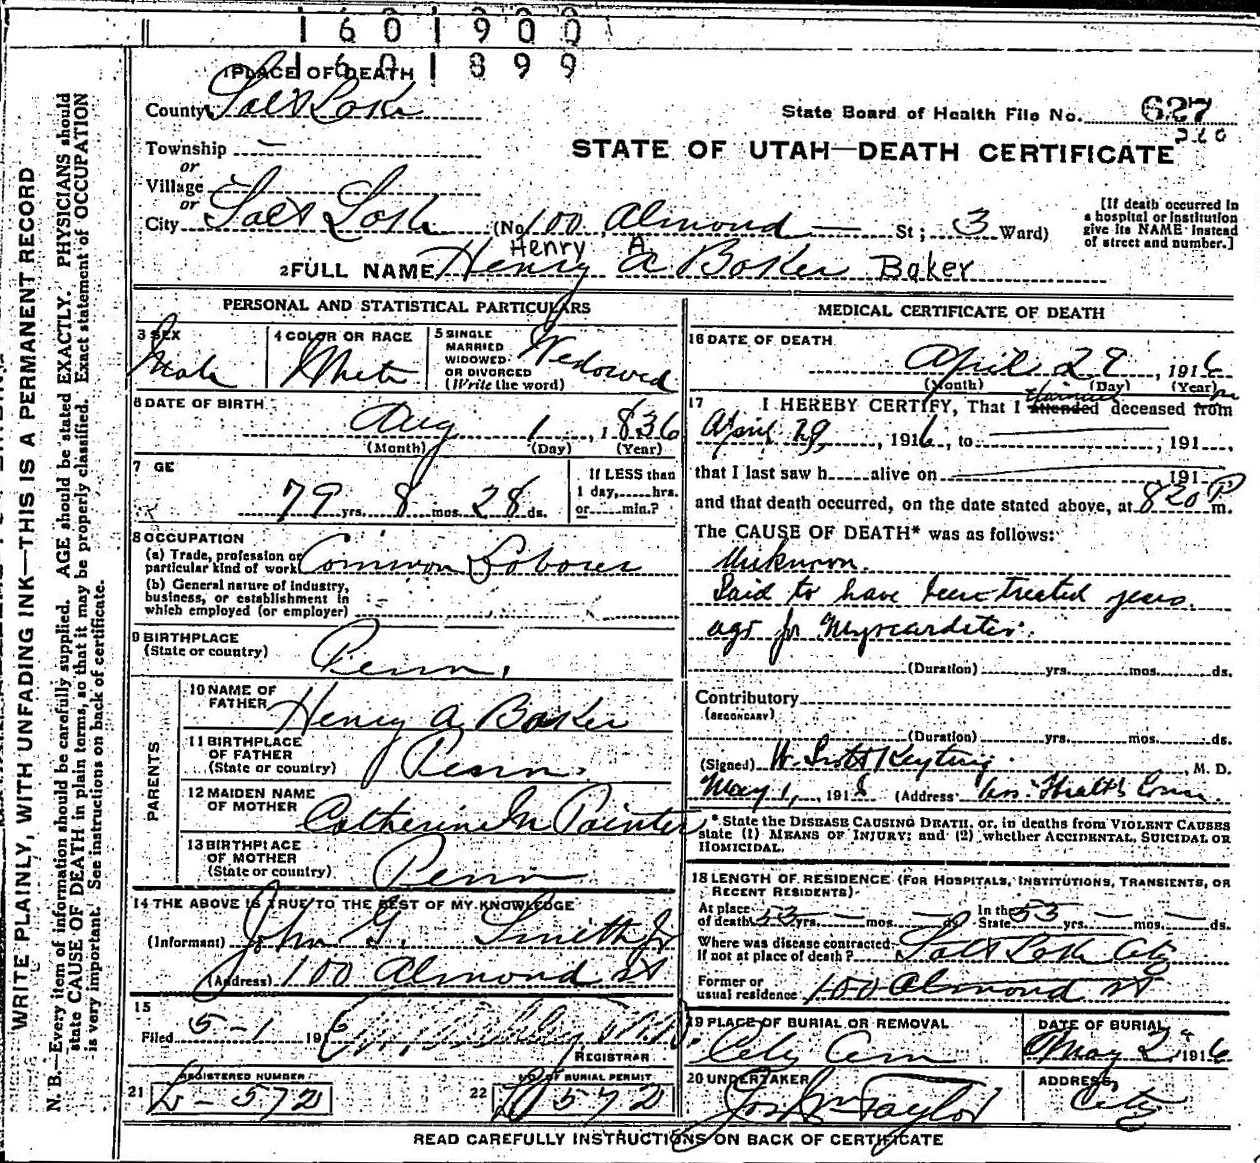 1601900
1601899
1 PLACE OF DEATH
County Salt Lake
State Board of Health File No. 627
260
Township —
STATE OF UTAH—DEATH CERTIFICATE
or
Village
or
City Salt Lake (No. 100 Almond — St; 3 Ward)
[If death occurred in
a hospital or institution
give its NAME instead
of street and number.]
Henry A.
2 FULL NAME Henry A Baker Baker
PERSONAL AND STATISTICAL PARTICULARS
3 SEX
Male
4 COLOR OR RACE
White
5 SINGLE
MARRIED
WIDOWED
OR DIVORCED
(Write the word)
Widowed
6 DATE OF BIRTH
Aug 1, 1836
(Month) (Day) (Year)
7 GE
79 yrs. 8 mos. 28 ds.
If LESS than
1 day,......hrs.
or......min.?
8 OCCUPATION
(a) Trade, profession or
particular kind of work Common Laborer
(b) General nature of industry,
business, or establishment in
which employed (or employer)
9 BIRTHPLACE
(State or country)
Penn.
PARENTS
10 NAME OF
FATHER Henry A Baker
11 BIRTHPLACE
OF FATHER
(State or country) Penn.
12 MAIDEN NAME
OF MOTHER
Catherine M Painter
13 BIRTHPLACE
OF MOTHER
(State or country) Penn
14 THE ABOVE IS TRUE TO THE BEST OF MY KNOWLEDGE
(Informant) John G. Smith Jr
(Address) 100 Almond St
15
Filed 5-1 1916
REGISTRAR
21 REGISTERED NUMBER
L-572
22 NO. OF BURIAL PERMIT
572
MEDICAL CERTIFICATE OF DEATH
16 DATE OF DEATH
April 29, 1916
(Month) (Day) (Year)
17 I HEREBY CERTIFY, That I attended deceased from
April 29, 1916, to , 191
that I last saw h alive on 191
and that death occurred, on the date stated above, at 820 P m.
The CAUSE OF DEATH* was as follows:
Unknown.
Said to have been treated years
ago for Myocarditis.
(Duration) yrs. mos. ds.
Contributory
(SECONDARY)
(Duration) yrs. mos. ds.
(Signed) W. Scott Keyting, M. D.
May 1, 1916 (Address Health Comr.
* State the DISEASE CAUSING DEATH, or, in deaths from VIOLENT CAUSES
state (1) MEANS OF INJURY; and (2) whether ACCIDENTAL, SUICIDAL OR
HOMICIDAL.
18 LENGTH OF RESIDENCE (FOR HOSPITALS, INSTITUTIONS, TRANSIENTS, OR
RECENT RESIDENTS)
At place
of death 53 yrs. — mos. — ds. In the
State 53 yrs. — mos. — ds.
Where was disease contracted,
If not at place of death? Salt Lake City
Former or
usual residence 100 Almond St
19 PLACE OF BURIAL OR REMOVAL
City Cem
DATE OF BURIAL
May 2, 1916
20 UNDERTAKER
Jos Wm Taylor
ADDRESS
City
READ CAREFULLY INSTRUCTIONS ON BACK OF CERTIFICATE
WRITE PLAINLY, WITH UNFADING INK—THIS IS A PERMANENT RECORD
N. B.—Every item of information should be carefully supplied. AGE should be stated EXACTLY. PHYSICIANS should
state CAUSE OF DEATH in plain terms, so that it may be properly classified. Exact statement of OCCUPATION
is very important. See instructions on back of certificate.